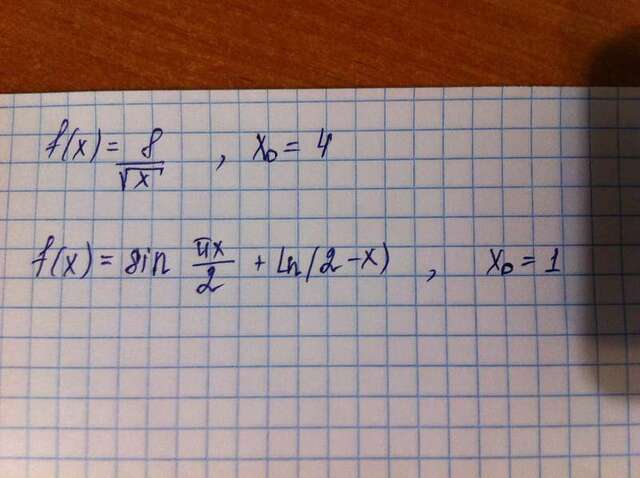 f(x) = 8/√x , x₀ = 4
f(x) = sin πx/2 + ln(2-x) , x₀ = 1